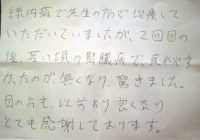 緑内障で先生の所で治療して
いただいていましたが、2回目の
後、若い頃の腎臓病で、疲れやす
かったのが無くなり、驚きました。
目の方も、以前より良くなり
とても感謝しております。